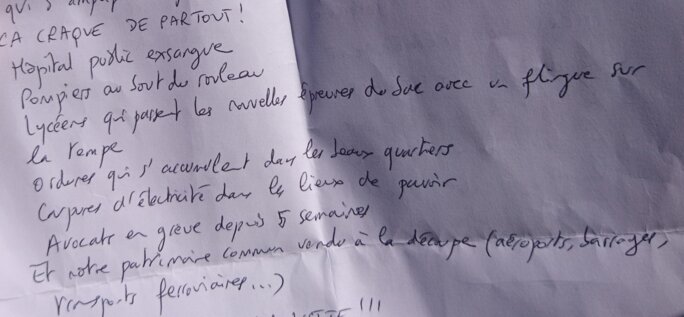 qui s'amp
ÇA CRAQUE DE PARTOUT !
Hôpital public exsangue
Pompiers au bout du rouleau
Lycéens qui passent les nouvelles épreuves du bac avec un flingue sur
la tempe
Ordures qui s'accumulent dans les beaux quartiers
Coupures d'électricité dans les lieux de pouvoir
Avocats en grève depuis 5 semaines
Et notre patrimoine commun vendu à la découpe (aéroports, barrages,
transports ferroviaires...)
!!!